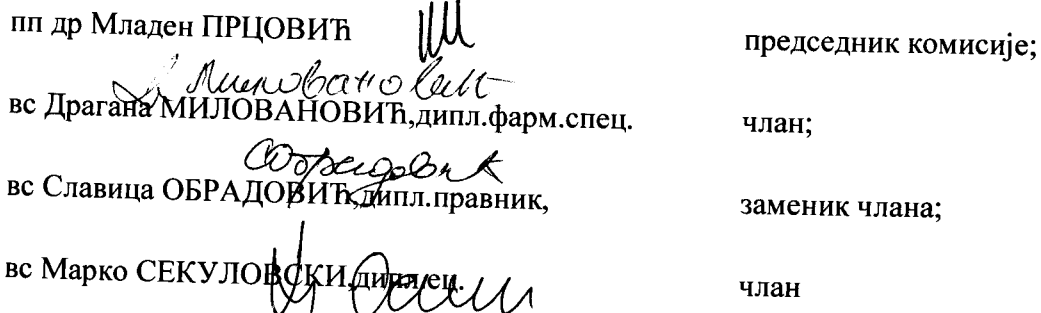 пп др Младен ПРЦОВИЋ председник комисије;
Д Миловановић
вс Драгана МИЛОВАНОВИЋ,дипл.фарм.спец. члан;
СОбрадовић
вс Славица ОБРАДОВИЋ,дипл.правник, заменик члана;
вс Марко СЕКУЛОВСКИ,дипл.ец. члан